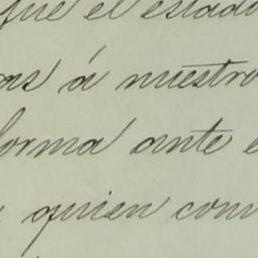 fué el estado
as á nuestro
forma ante e
quien com